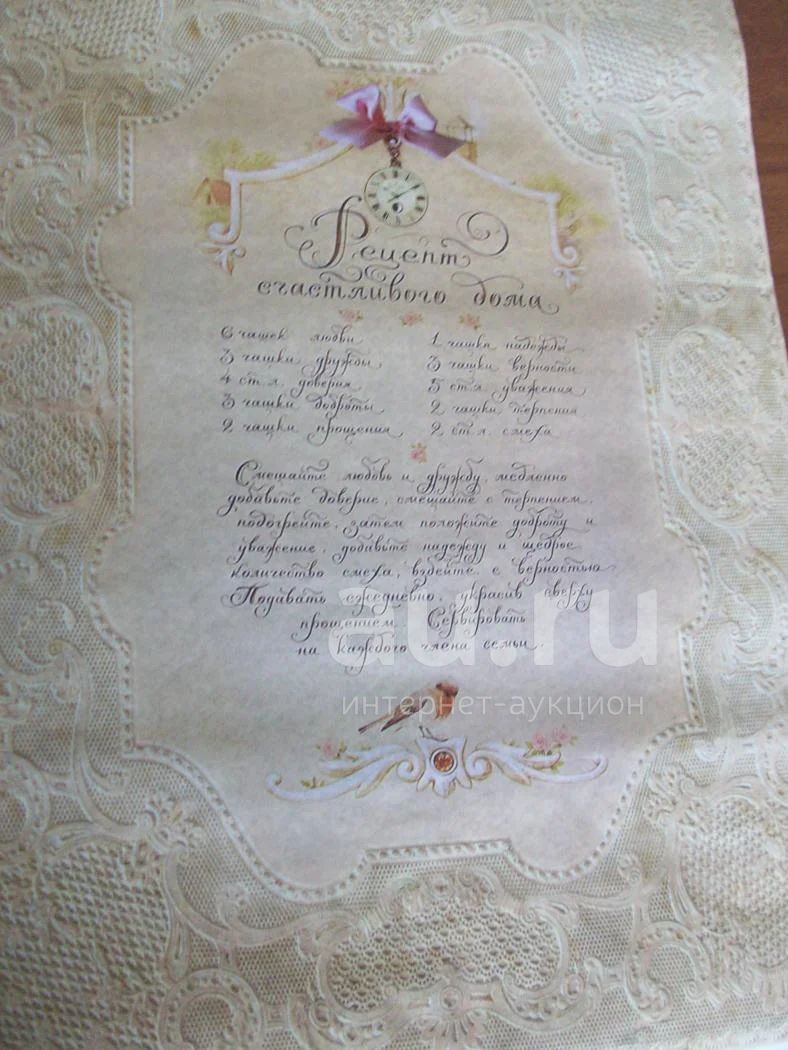 Рецепт
счастливого дома
6 чашек любви
3 чашки дружбы
4 ст.л. доверия
3 чашки доброты
2 чашки прощения
1 чашка надежды
3 чашки верности
5 ст.л. уважения
2 чашки терпения
2 ст.л. смеха
Смешайте любовь и дружбу, медленно
добавьте доверие, смешайте с терпением,
подогрейте, затем положите доброту и
уважение, добавьте надежду и щедрое
количество смеха, взбейте с верностью.
Подавать ежедневно, украсив сверху
прощением. Сервировать
на каждого члена семьи.
au.ru
интернет-аукцион